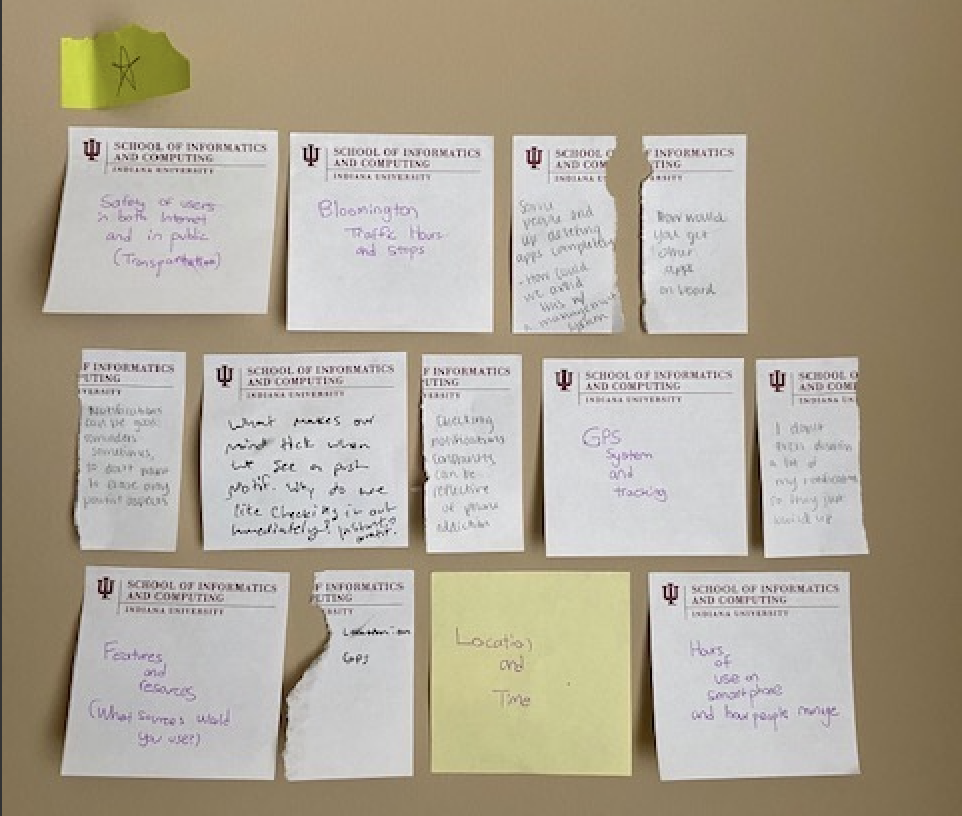 SCHOOL OF INFORMATICS
AND COMPUTING
INDIANA UNIVERSITY
Safety of users
in both Internet
and in public
(Transportation)
SCHOOL OF INFORMATICS
AND COMPUTING
INDIANA UNIVERSITY
Bloomington
Traffic Hours
and stops
SCHOOL OF INF
AND COM
INDIANA U
Some
people end
up deleting
apps completely
- How could
we avoid
this w/
a management
system
F INFORMATICS
TING
VERSITY
How would
you get
other
apps
on board
F INFORMATICS
UTING
VERSITY
Notifications
can be good
reminders
sometimes,
so don't want
to erase any
positive aspects
SCHOOL OF INFORMATICS
AND COMPUTING
INDIANA UNIVERSITY
What makes our
mind tick when
we see a push
notif. Why do we
like checking it out
immediately?
F INFORMATICS
UTING
VERSITY
Checking
notifications
constantly
can be
reflective
of phone
addiction
SCHOOL OF INFORMATICS
AND COMPUTING
INDIANA UNIVERSITY
GPS
System
and
tracking
SCHOOL OF
AND COM
INDIANA UNIV
I don't
even dismiss
a lot of
my notifications
so they just
build up
SCHOOL OF INFORMATICS
AND COMPUTING
INDIANA UNIVERSITY
Features
and
resources
(What sources would
you use?)
F INFORMATICS
PUTING
RSITY
GPS
Location
and
Time
SCHOOL OF INFORMATICS
AND COMPUTING
INDIANA UNIVERSITY
Hours
of
use on
smartphone
and how people manage